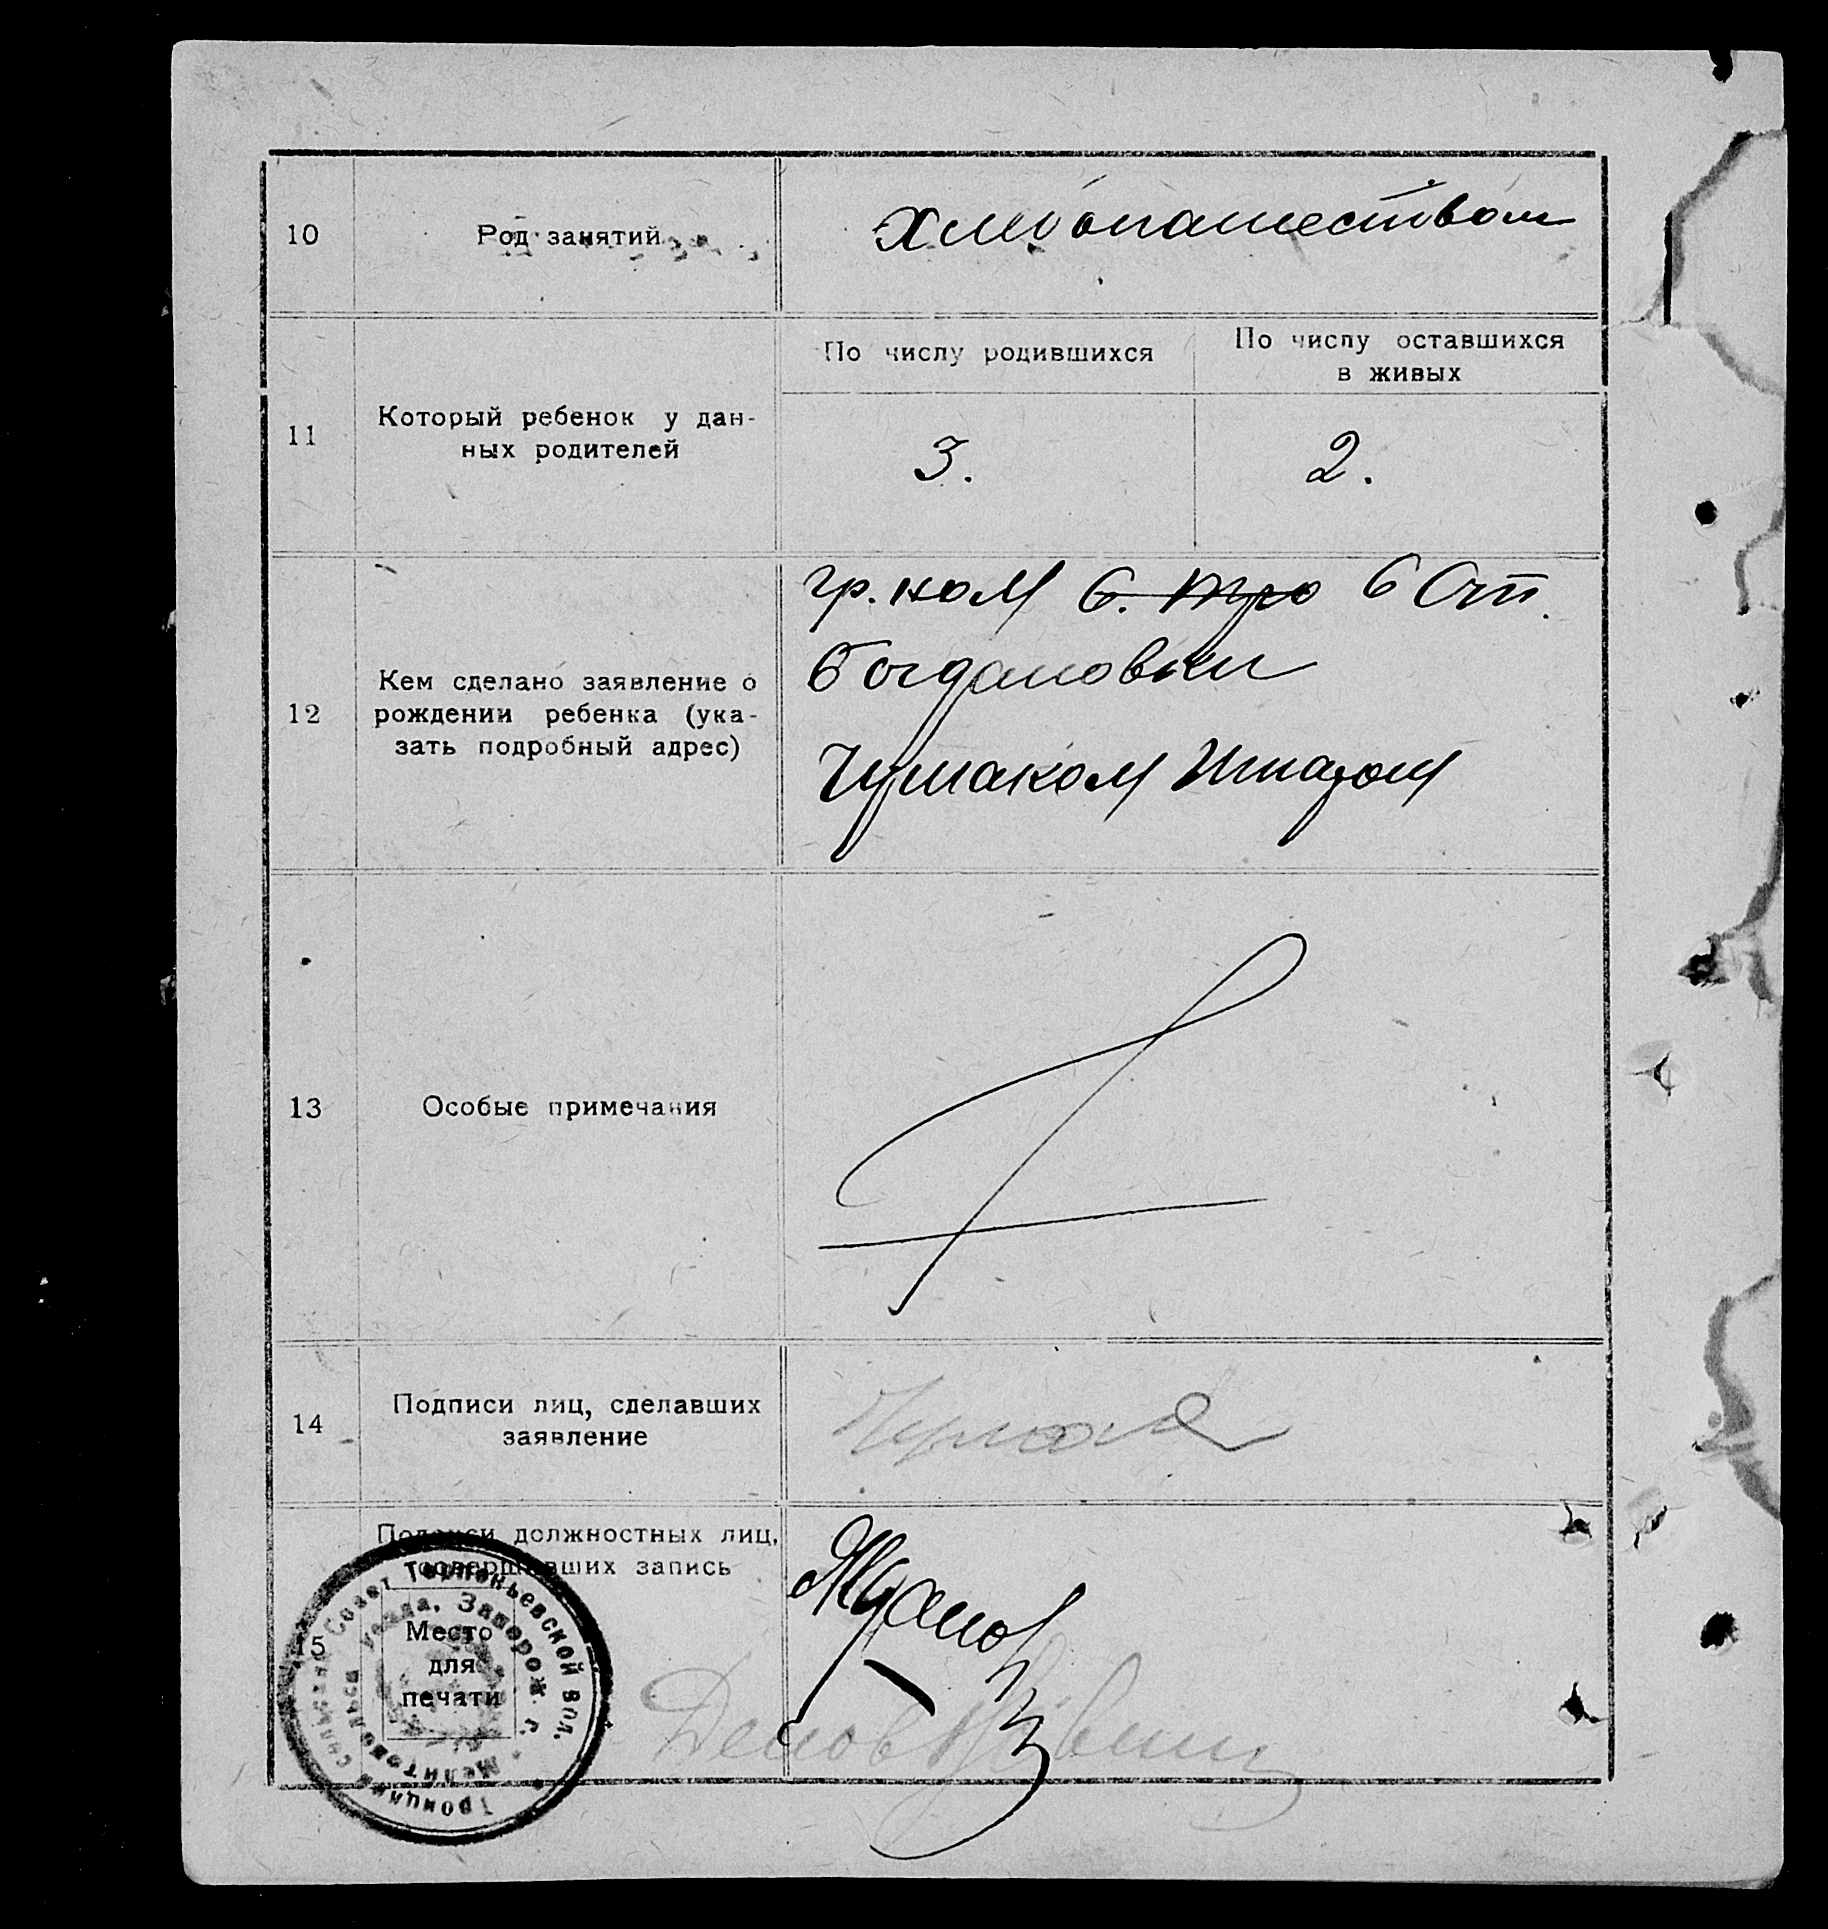 10
Род занятий
Хлебопашеством
11
Который ребенок у дан-
ных родителей
По числу родившихся
По числу оставшихся
в живых
3.
2.
12
Кем сделано заявление о
рождении ребенка (ука-
зать подробный адрес)
гр.ном С. Тро С От.
Богдановки
Чумаком Игнатом
13
Особые примечания
14
Подписи лиц, сделавших
заявление
Чумак
15
Подписи должностных лиц,
совершивших запись
Место
для
печати
Троицкий сельский Совет Терпеньевской вол.
Мелитопольск. уезда, Запорож. г.